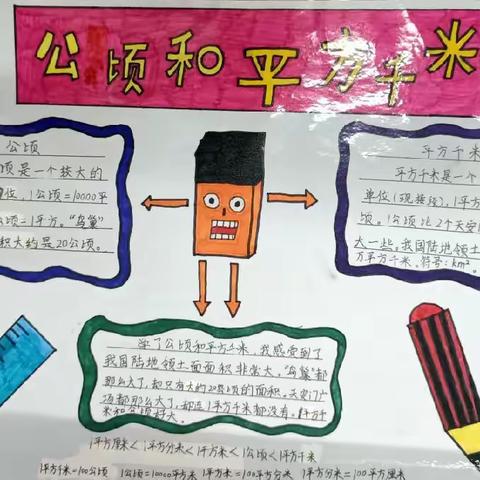 公顷和平方千米
公顷
顷是一个较大的
单位,1公顷=10000平
公顷=1平方。“鸟巢”
积大约是20公顷。
平方千米
平方千米是一个
单位
顷。1公顷比2个天安
大一些。我国陆地领土
万平方千米,符号:km²。
学了公顷和平方千米,我感受到了
我国陆地领土面面积非常大。“鸟巢”都
那么大了,却只有大约20公顷的面积。天安门广
场都那么大了,却连1平方千米都没有。1平方千
米和公顷好大。
1平方厘米<1平方分米<1平方米<1公顷<1平方千米
1平方千米=100公顷 1公顷=10000平方米 1平方米=100平方分米 1平方分米=100平方厘米